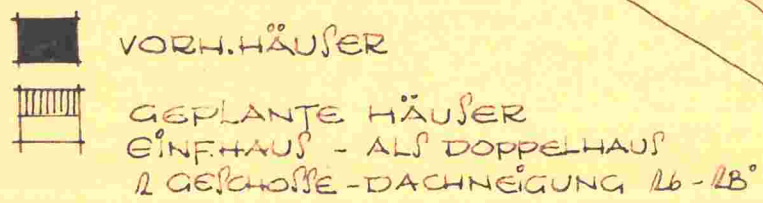 VORH. HÄUSER
GEPLANTE HÄUSER
EINF.HAUS - ALS DOPPELHAUS
2 GESCHOSSE - DACHNEIGUNG 26 - 28°